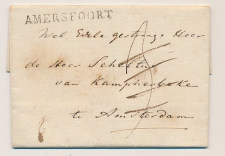 AMERSFOORT
Wel Edele gestrenge Heer
de Heer Scheltus
van Kamphenbeke
te Amsterdam